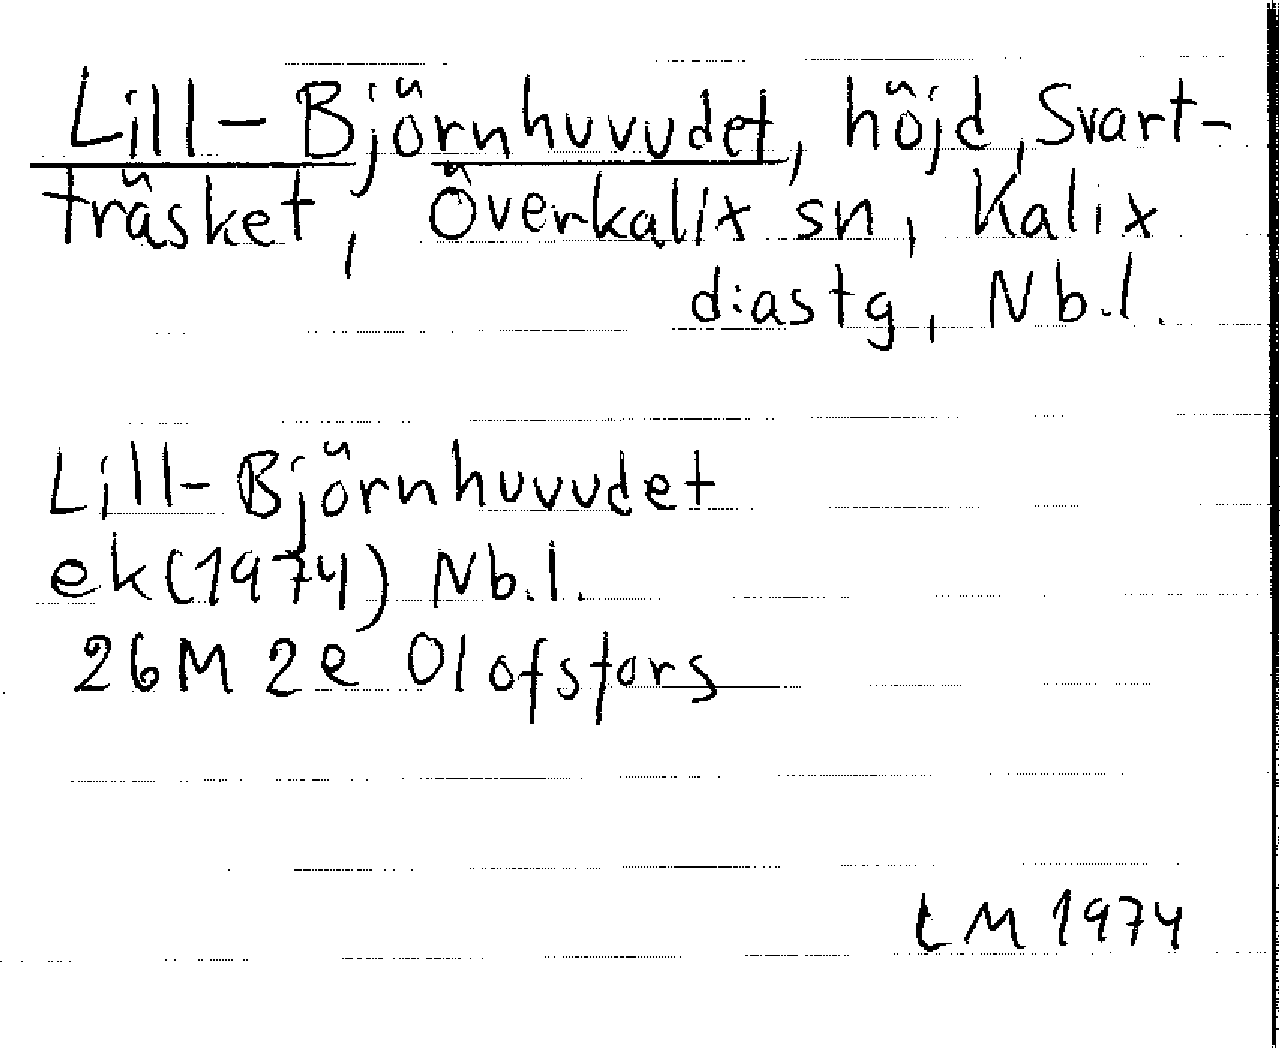 Lill-Björnhuvudet, höjd, Svart-
träsket, Överkalix sn, Kalix
d:astg, Nb.l.
Lill-Björnhuvudet
ek(1974) Nb.l.
26M 2e Olofsfors
LM 1974